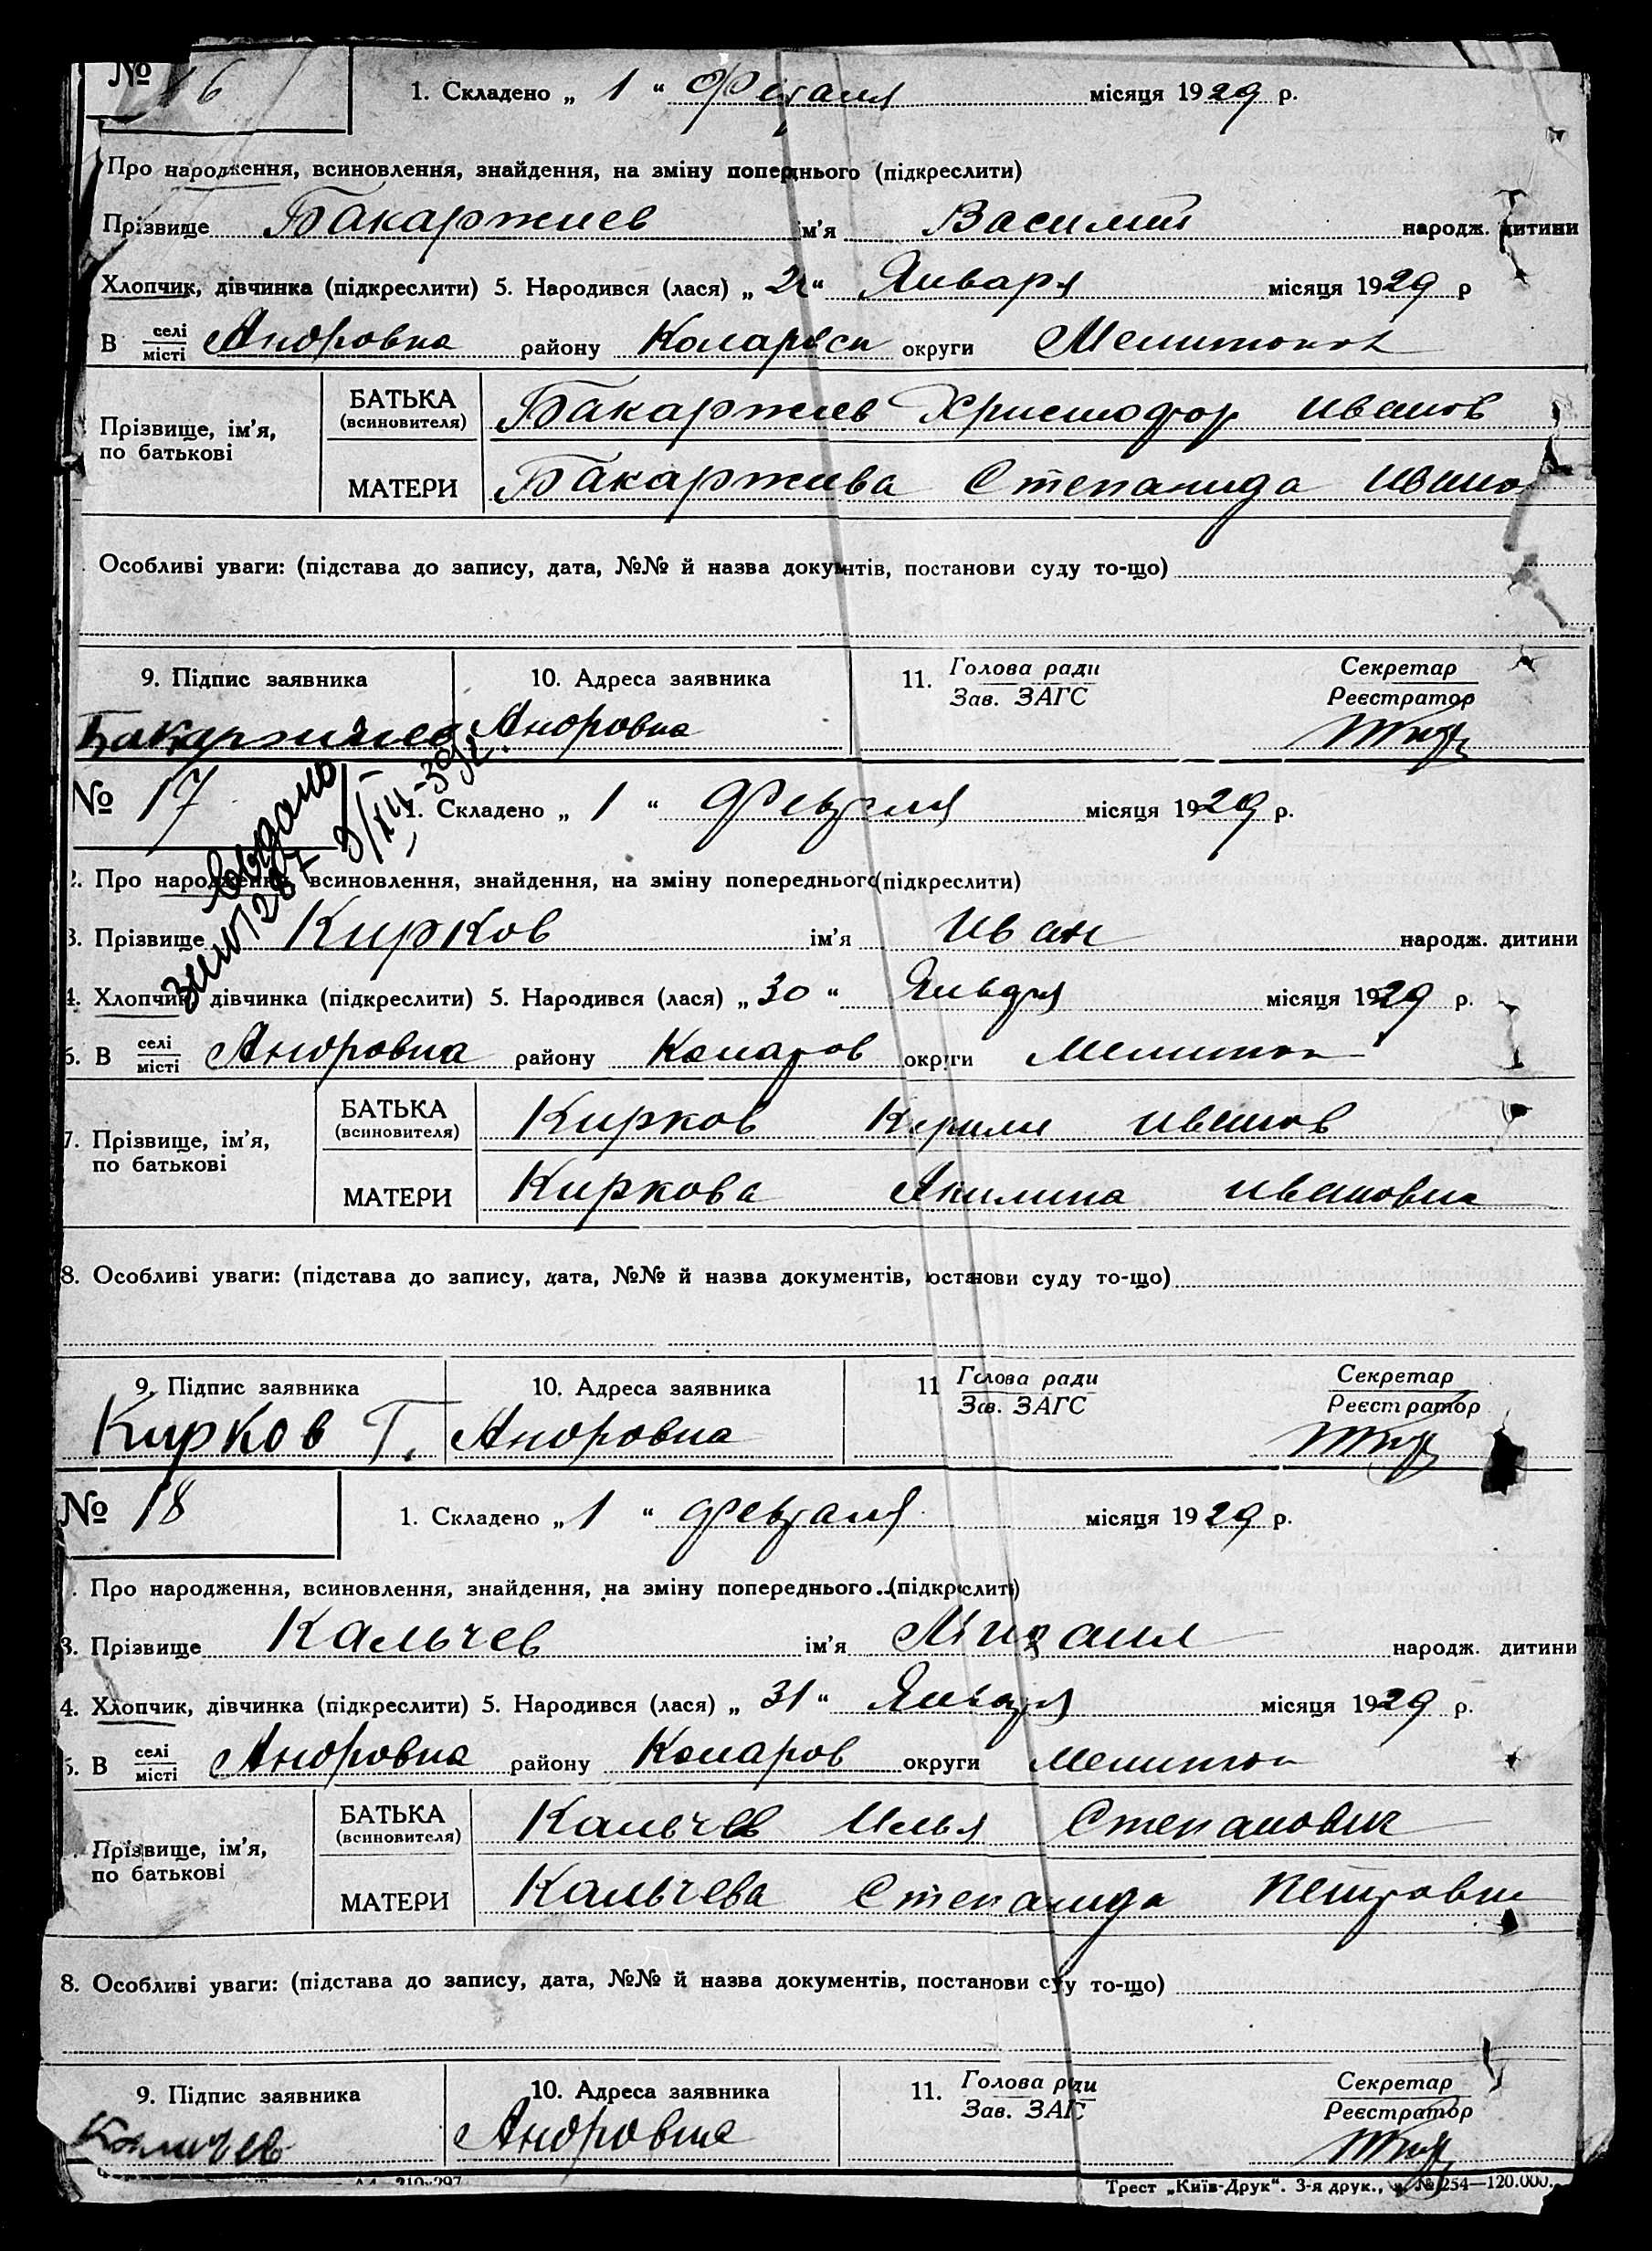 № 16
1. Складено „ 1 “ Февраля місяця 1929 р.
Про народження, всиновлення, знайдення, на зміну попереднього (підкреслити)
Прізвище Бакаржиев ім'я Василий народж. дитини
Хлопчик, дівчинка (підкреслити) 5. Народився (лася) „ “ Января місяця 1929 р
В селі місті Андровка району Коларвск округи Мелитопол
Прізвище, ім'я, по батькові
БАТЬКА (всиновителя) Бакаржиев Христофор Иванов
МАТЕРИ Бакаржиева Степанида Ивано
Особливі уваги: (підстава до запису, дата, №№ й назва документів, постанови суду то-що)
9. Підпис заявника 10. Адреса заявника 11. Голова ради Зав. ЗАГС Секретар Реєстратор
Бакаржиев Андровка
№ 17 1. Складено „ 1 “ Февраля місяця 1929 р.
выдано
2. Про народження, всиновлення, знайдення, на зміну попереднього (підкреслити)
3. Прізвище Кирков ім'я Иван народж. дитини
4. Хлопчик, дівчинка (підкреслити) 5. Народився (лася) „ 30 “ Января місяця 1929 р.
6. В селі місті Андровка району Коларов округи Мелитоп
7. Прізвище, ім'я, по батькові
БАТЬКА (всиновителя) Кирков Кирилл Иванов
МАТЕРИ Киркова Акилина Ивановна
8. Особливі уваги: (підстава до запису, дата, №№ й назва документів, постанови суду то-що)
9. Підпис заявника 10. Адреса заявника 11 Голова ради Зав. ЗАГС Секретар Реєстратор
Кирков Андровка
№ 18
1. Складено „ 1 “ февраля місяця 1929 р.
Про народження, всиновлення, знайдення, на зміну попереднього (підкреслити)
3. Прізвище Кальчев ім'я Михаил народж. дитини
4. Хлопчик, дівчинка (підкреслити) 5. Народився (лася) „ 31 “ Января місяця 1929 р.
В селі місті Андровка району Коларов округи Мелитоп
Прізвище, ім'я, по батькові
БАТЬКА (всиновителя) Кальчев Илья Степанович
МАТЕРИ Кальчева Степанида Петровна
8. Особливі уваги: (підстава до запису, дата, №№ й назва документів, постанови суду то-що)
9. Підпис заявника 10. Адреса заявника 11. Голова ради Зав. ЗАГС Секретар Реєстратор
Кальчев Андровка
Трест „Київ-Друк“. 3-я друк., № 254—120.000.